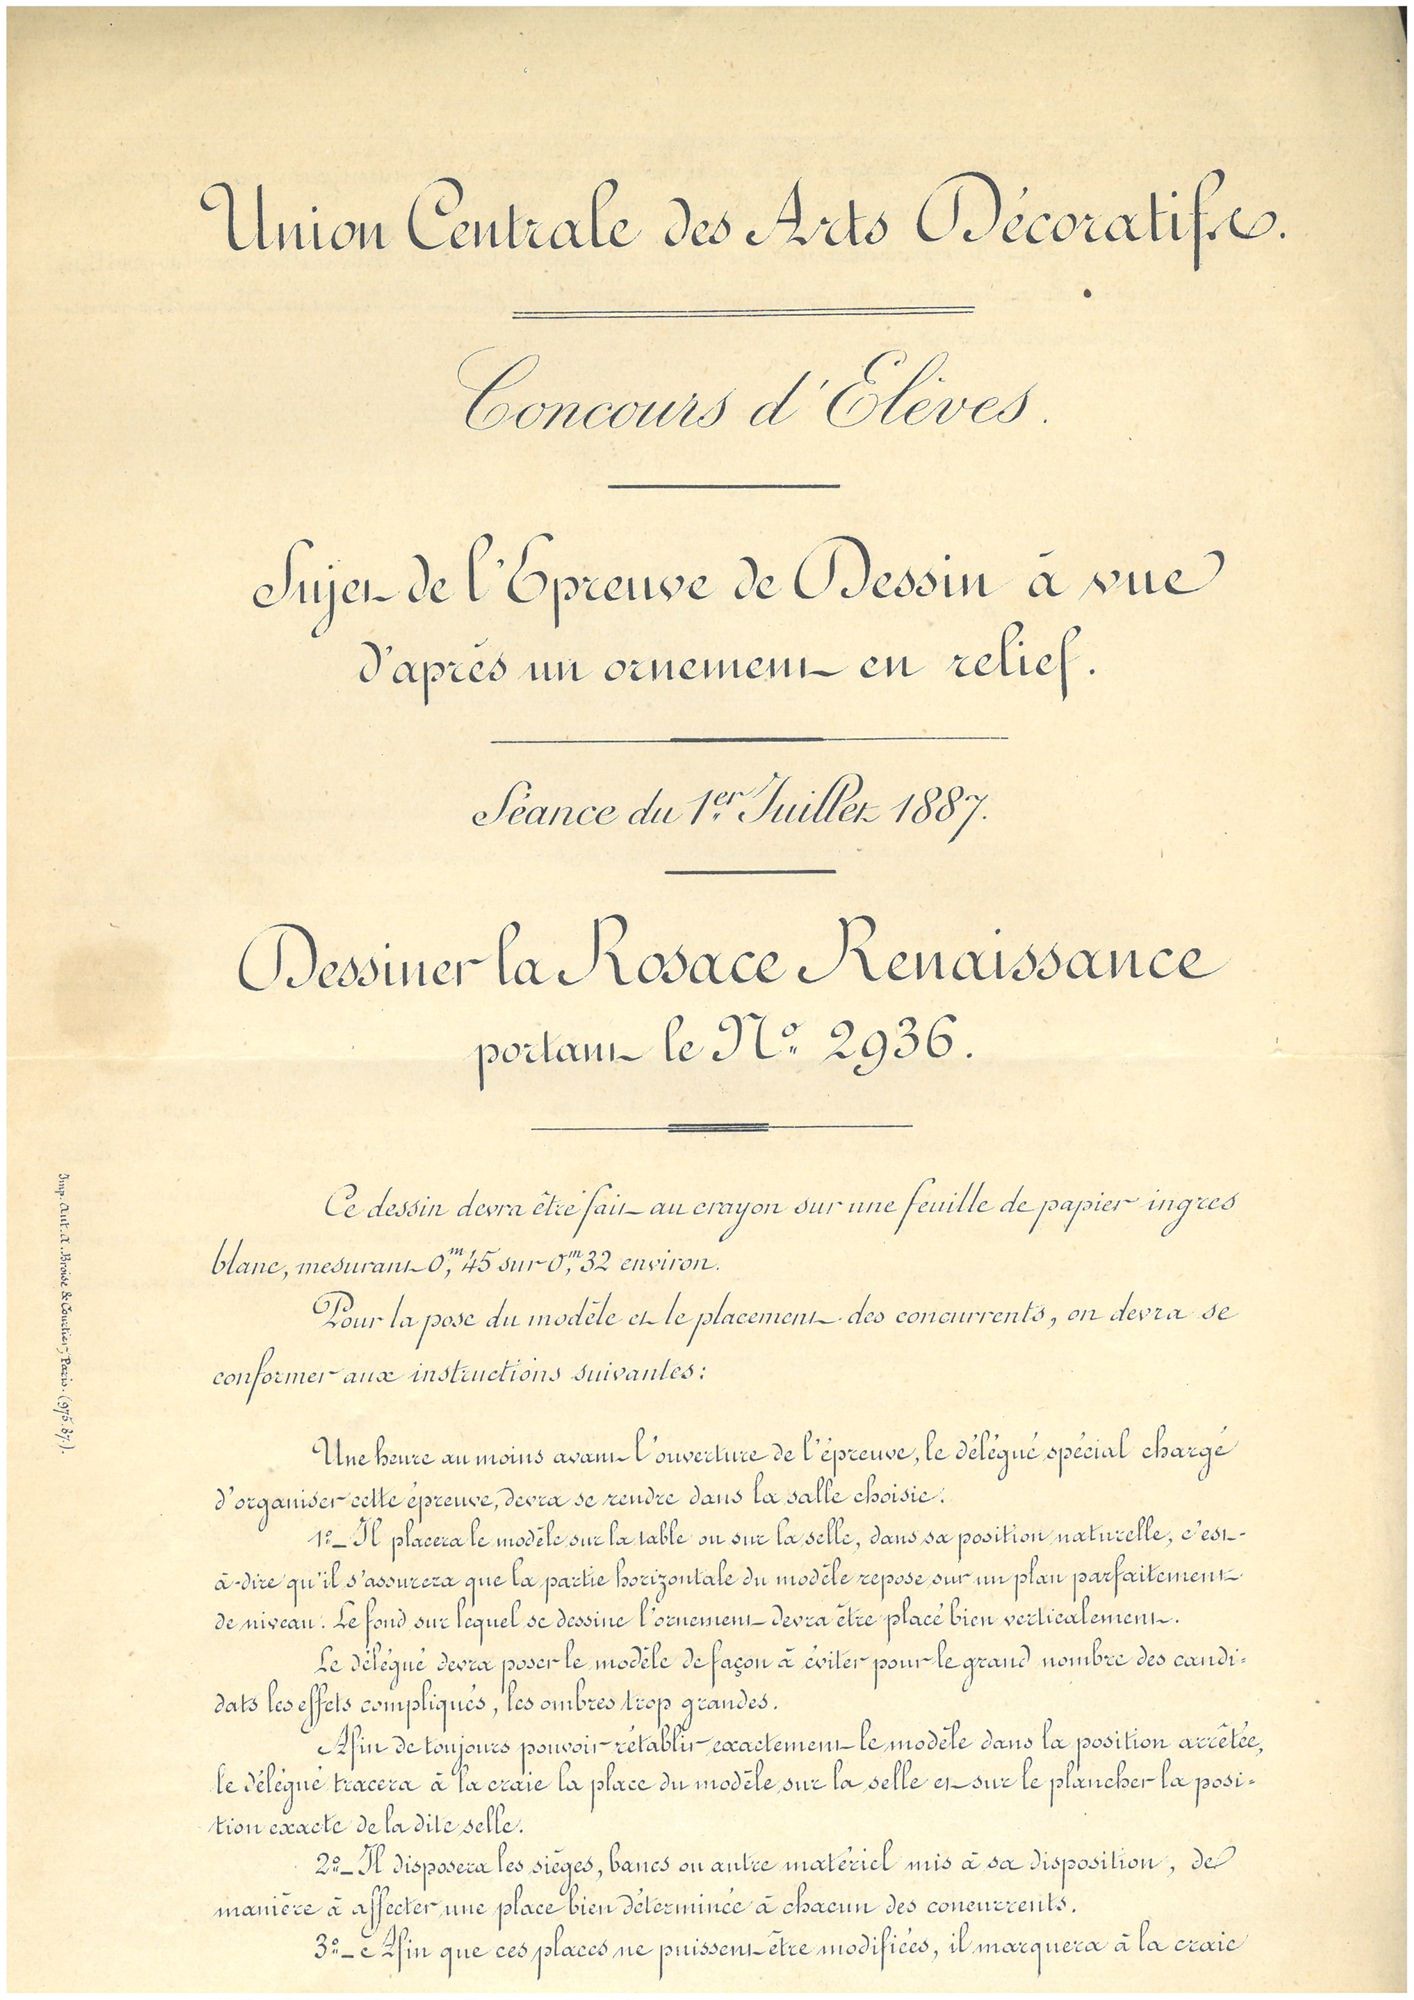 Union Centrale des Arts Décoratifs.
Concours d'Elèves.
Sujet de l'Epreuve de Dessin à vue
d'après un ornement en relief.
Séance du 1er Juillet 1887.
Dessiner la Rosace Renaissance
portant le No 2936.
Ce dessin devra être fait au crayon sur une feuille de papier ingres
blanc, mesurant 0m,45 sur 0m,32 environ.
Pour la pose du modèle et le placement des concurrents, on devra se
conformer aux instructions suivantes:
Une heure au moins avant l'ouverture de l'épreuve, le délégué spécial chargé
d'organiser cette épreuve, devra se rendre dans la salle choisie.
1o_ Il placera le modèle sur la table ou sur la selle, dans sa position naturelle, c'est-
à-dire qu'il s'assurera que la partie horizontale du modèle repose sur un plan parfaitement
de niveau. Le fond sur lequel se dessine l'ornement devra être placé bien verticalement.
Le délégué devra poser le modèle de façon à éviter pour le grand nombre des candi-
dats les effets compliqués, les ombres trop grandes.
Afin de toujours pouvoir rétablir exactement le modèle dans la position arrêtée,
le délégué tracera à la craie la place du modèle sur la selle et sur le plancher la posi-
tion exacte de la dite selle.
2o_ Il disposera les sièges, bancs ou autre matériel mis à sa disposition, de
manière à affecter une place bien déterminée à chacun des concurrents.
3o_ Afin que ces places ne puissent être modifiées, il marquera à la craie
Imp. Aut. A. Broise & Courtier, Paris. (975.87.).